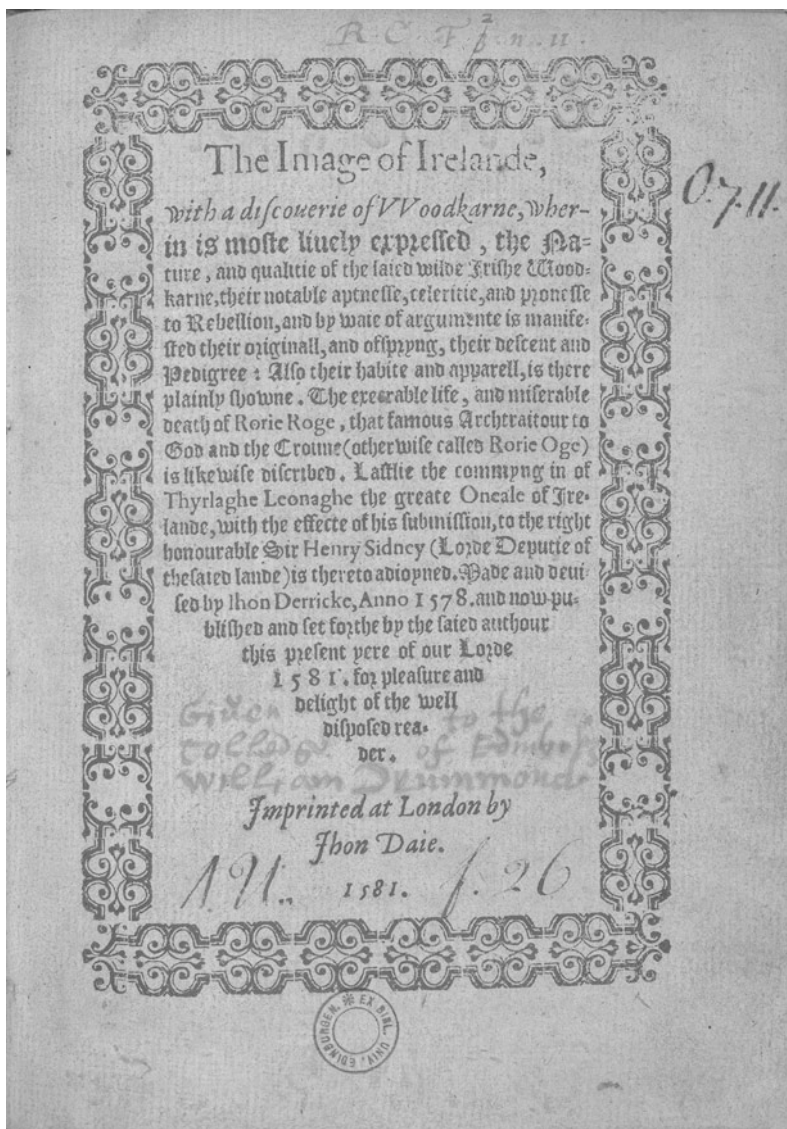 The Image of Irelande,
O.7.11.
with a discouerie of VVoodkarne, wher-
in is moste liuely expressed, the Na-
ture, and qualitie of the saied wilde Irishe Wood-
karne, their notable aptnesse, celeritie, and pronesse
to Rebellion, and by waie of argumente is manife-
sted their originall, and ofspryng, their descent and
Pedigree: Also their habite and apparell, is there
plainly showne. The execrable life, and miserable
death of Rorie Roge, that famous Archtraitour to
God and the Croune (otherwise called Rorie Oge)
is likewise discribed. Lastlie the commyng in of
Thyrlaghe Leonaghe the greate Oneale of Ire-
lande, with the effecte of his submission, to the right
honourable Sir Henry Sidney (Lorde Deputie of
thesaied lande) is thereto adioyned. Made and deui-
sed by Ihon Derricke, Anno 1578. and now pu-
blished and set forthe by the saied authour
this present yere of our Lorde
1581. for pleasure and
delight of the well
disposed rea-
der.
Giuen to the
Colledge of
William Drummond
Imprinted at London by
Jhon Daie.
1581.
f. 26
EX BIBL. UNIV. EDINBURGEN.